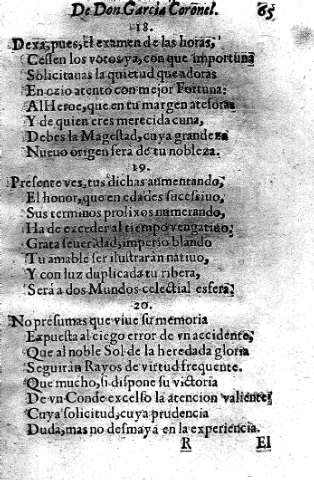 De Don Garcia Coronel. 65
18.
Dexa, pues, el examen de las horas,
Cessen los votos ya, con que importuna
Solicitauas la quietud que adoras
En ozio atento con mejor Fortuna:
Al Heroe, que en tu margen atesoras
Y de quien eres merecida cuna,
Debes la Magestad, cuya grandeza
Nueuo origen serà de tu nobleza.
19.
Presente ves, tus dichas aumentando,
El honor, que en edades sucessiuo,
Sus terminos prolixos numerando,
Ha de exceder al tiempo vengatiuo;
Grata seueridad, imperio blando
Tu amable ser ilustraràn natiuo,
Y con luz duplicada tu ribera,
Serà a dos Mundos celestial esfera;
20.
No presumas que viue su memoria
Expuesta al ciego error de vn accidente,
Que al noble Sol de la heredada gloria
Seguiràn Rayos de virtud frequente.
Que mucho, si dispone su victoria
De vn Conde excelso la atencion valiente,
Cuya solicitud, cuya prudencia
Duda, mas no desmaya en la experiencia.
R El